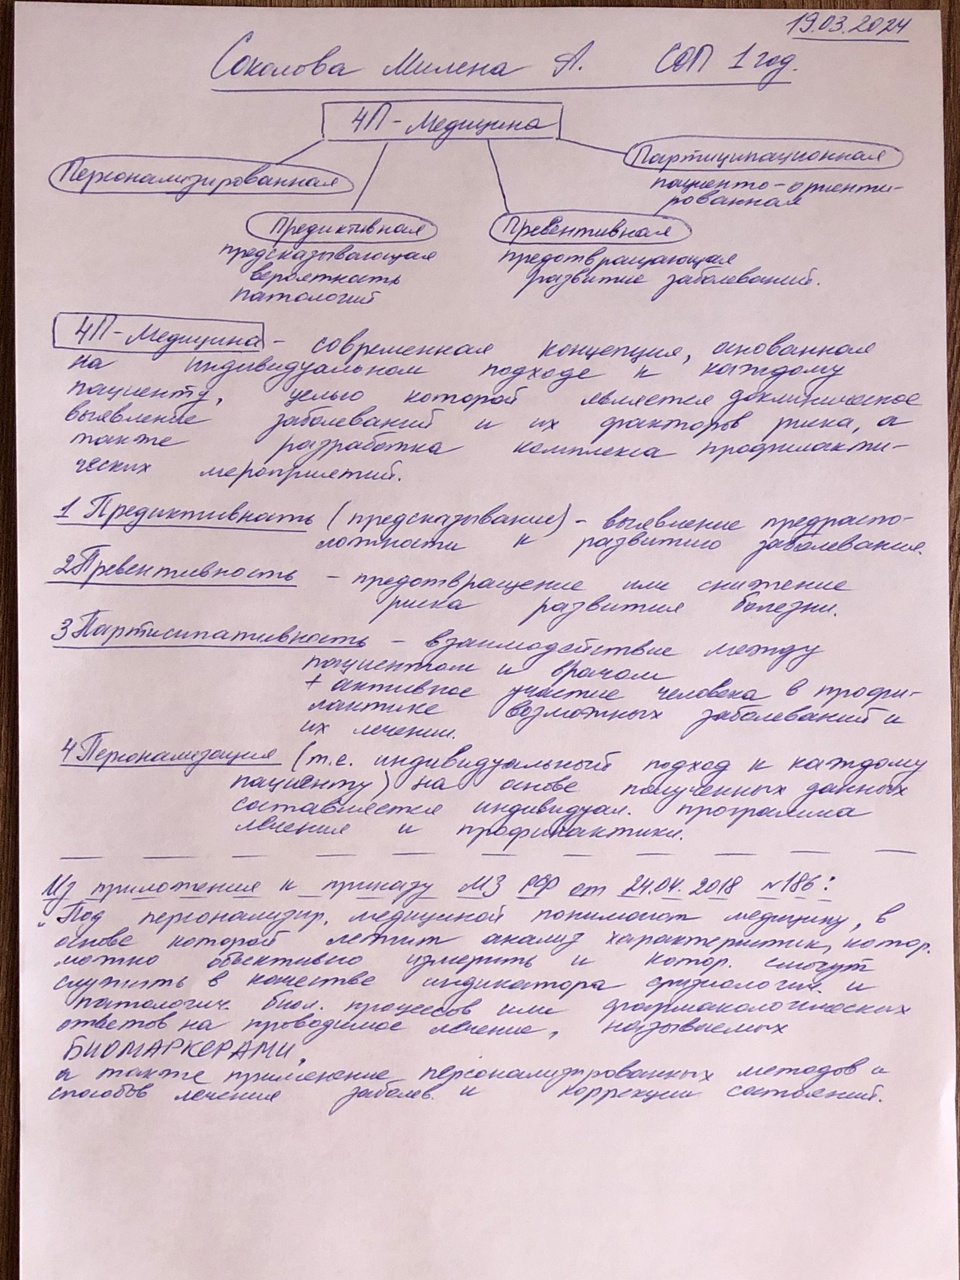 19.03.2024
Соколова Милена А. СОП 1 год.
4П-Медицина
Персонализированная
Партиципационная
пациенто-ориенти-
рованная
Предиктивная
предсказывающая
вероятность
патологий
Превентивная
предотвращающая
развитие заболеваний.
4П-Медицина - современная концепция, основанная
на индивидуальном подходе к каждому
пациенту, целью которой является доклиническое
выявление заболеваний и их факторов риска, а
также разработка комплекса профилакти-
ческих мероприятий.
1 Предиктивность (предсказывание) - выявление предраспо-
ложности к развитию заболевания.
2 Превентивность - предотвращение или снижение
риска развития болезни.
3 Партисипативность - взаимодействие между
пациентом и врачом
+ активное участие человека в профи-
лактике возможных заболеваний и
их лечении.
4 Персонализация (т.е. индивидуальный подход к каждому
пациенту) на основе полученных данных
составляется индивидуал. программа
лечения и профилактики.
Из приложения к приказу МЗ РФ от 24.04.2018 №186:
"Под персонализир. медициной понимают медицину, в
основе которой лежит анализ характеристик, котор.
можно объективно измерить и котор. смогут
служить в качестве индикатора физиологич. и
патологич. биол. процессов или фармакологических
ответов на проводимое лечение, называемых
БИОМАРКЕРАМИ,
а также применение персонализированных методов и
способов лечения заболев. и коррекции состояний.